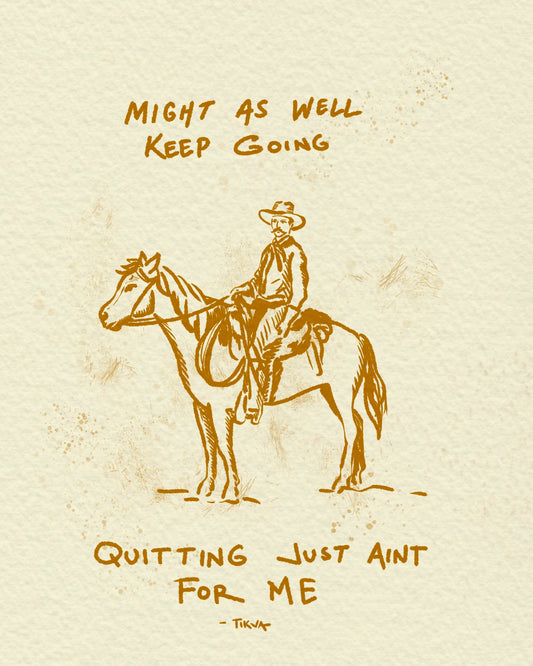 MIGHT AS WELL
KEEP GOING
QUITTING JUST AINT
FOR ME
- TIKVA